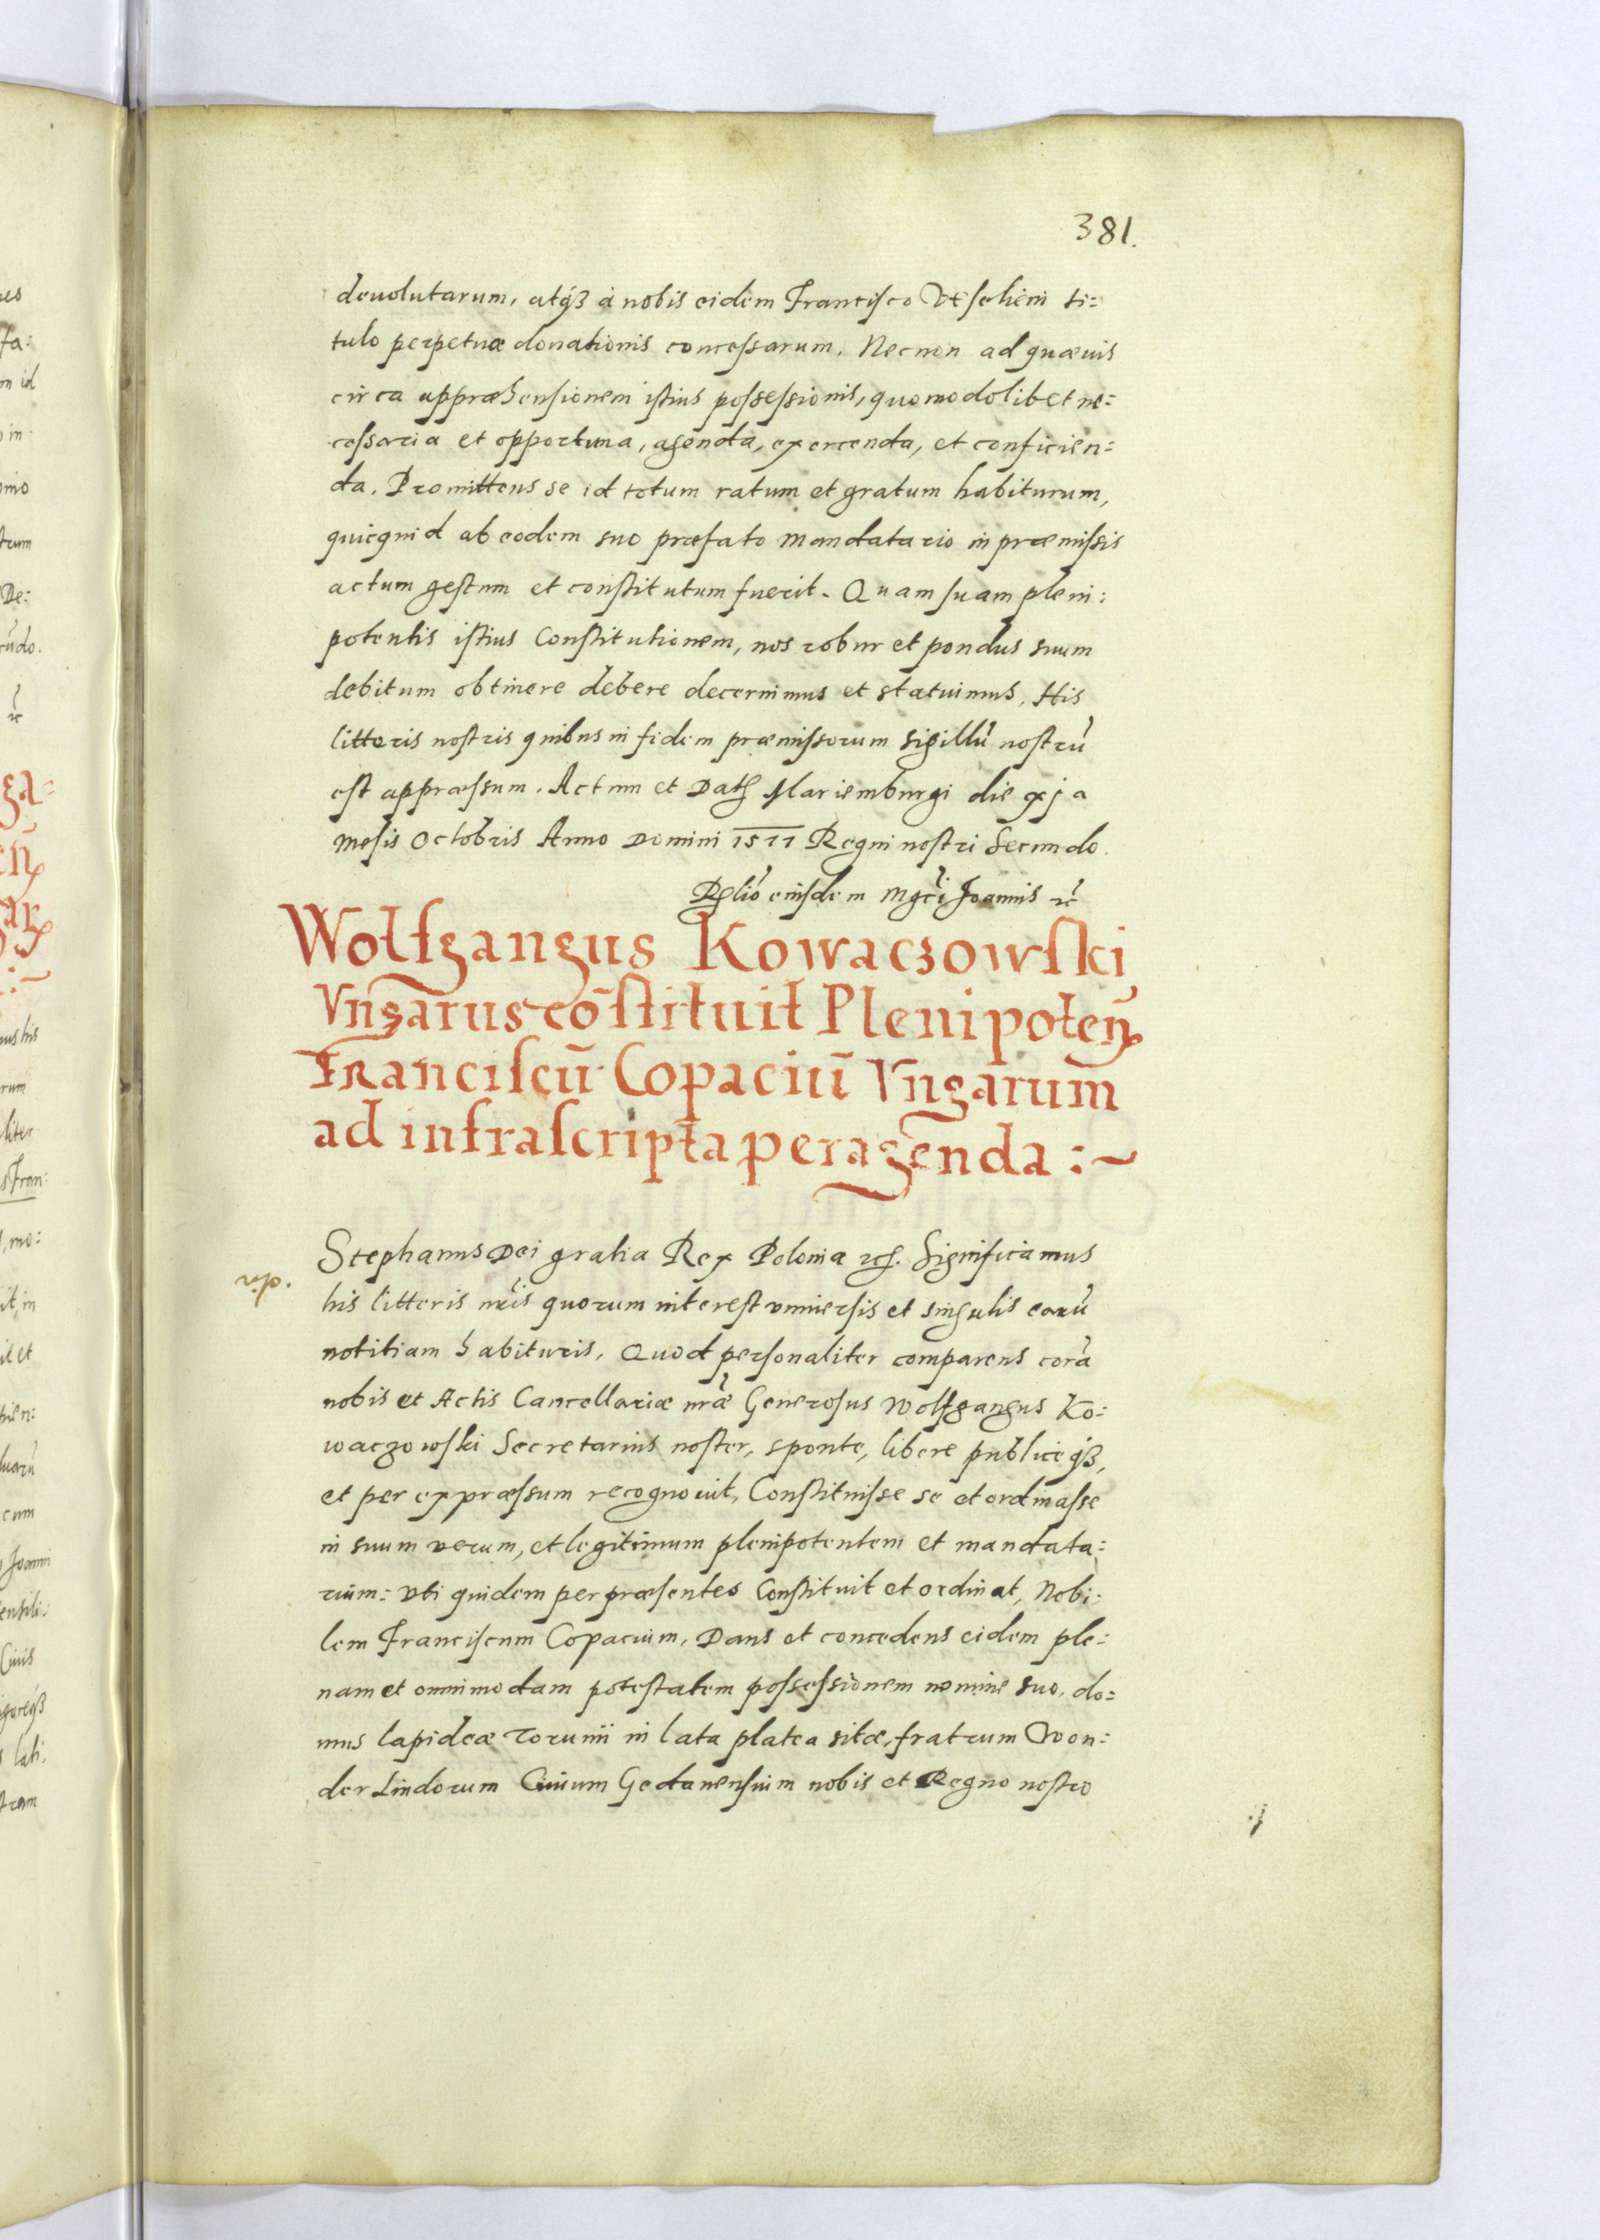 381.
deuolutarum, atq́ꝫ à nobis eidem Francisco Veselieni ti=
tulo perpetuæ donationis concessarum. Necnon ad quæuis
circa appræhensionem istius possessionis, quomodolibet ne=
cessaria et opportuna, agenda, exercenda, et conficien=
da. Promittens se id totum ratum et gratum habiturum,
quicquid ab eodem suo præfato Mandatario in præmissis
actum gestum et constitutum fuerit. Quam suam pleni:
potentis istius Constitutionem, nos robur et pondus suum
debitum obtinere debere decernimus et statuimus. His
litteris nostris quibus in fidem præmissorum sigillũ nostrũ
est appræssum. Actum et Datꝫ Mariemburgi die xja
mēsis Octobris Anno Domini 1577 Regni nostri Secundo.
Rel̃io eiusdem Mgcĩ Joannis ꝛc̃
Wolfgangus Kowaczowski
Vngarus cõstituit Plenipoteñ
Franciscũ Copaciũ Vngarum
ad infrascripta peragenda :~
Stephanus Dei gratia Rex Poloniæ ꝛc. Significamus
his litteris nr̃is quorum interest vniuersis et singulis earũ
notitiam habituris. Quod personaliter comparens corã
nobis et Actis Cancellariæ nr̃æ Generosus Wolfgangus Ko:
waczowski Secretarius noster, sponte, libere publiceq́ꝫ,
et per expræssum recognouit, Constituisse se et ordinasse
in suum verum, et legitimum plenipotentem et mandata:
rium: vti quidem per præsentes Constituit et ordinat, Nobi:
lem Franciscum Copacium. Dans et concedens eidem ple:
nam et omnimodam potestatem possessionem nomine suo, do:
mus lapideæ Torunii in lata platea sitæ, fratrum Von:
der Lindorum Ciuium Gedanensium nobis et Regno nostro